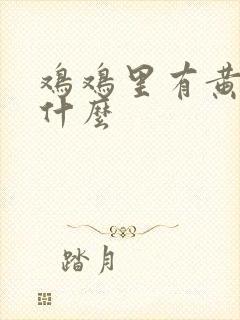 鸡鸡里有黄
什麽
踏月